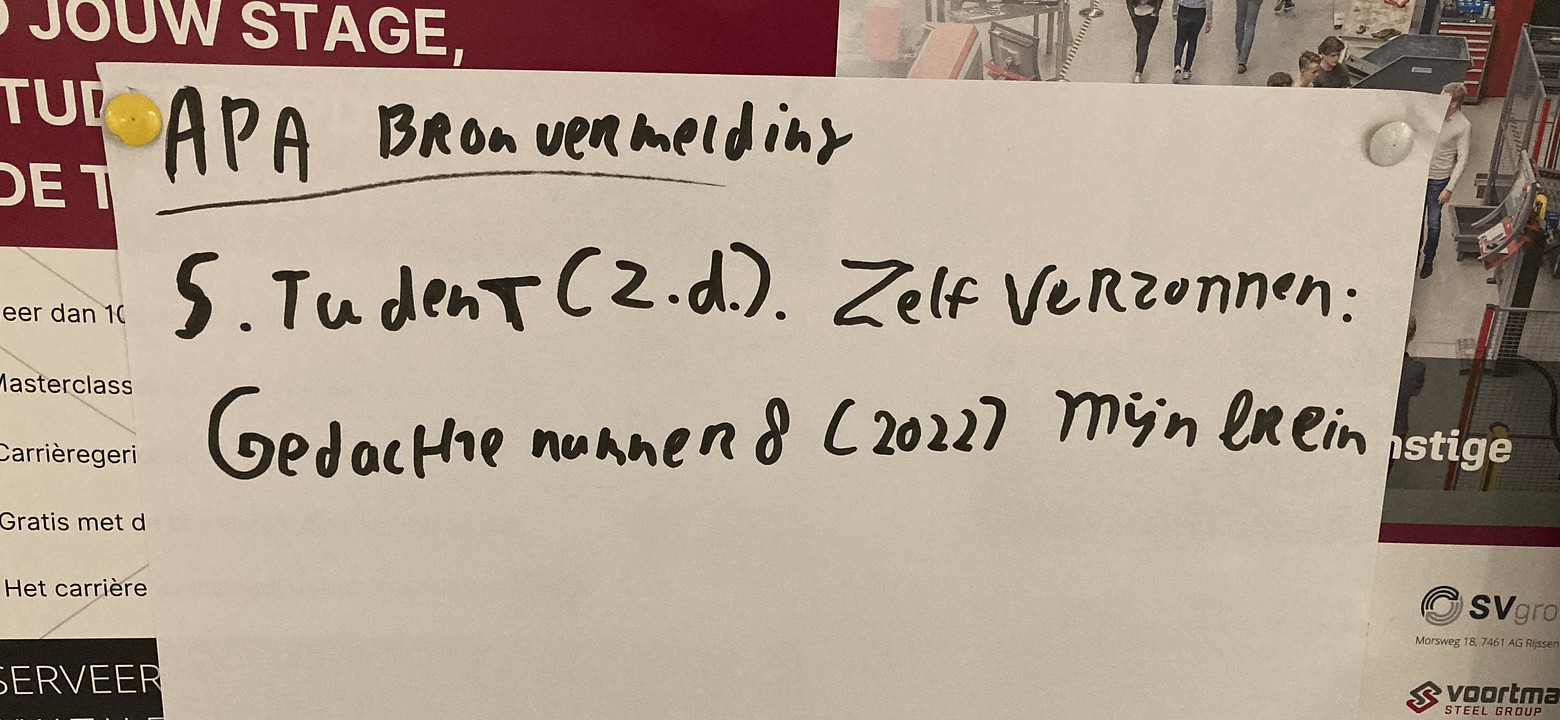 JOUW STAGE,
TUD
DE T
APA Bronvermelding
S. Tudent (z.d.). Zelf verzonnen:
Gedachte nummer 8 (2022) mijn brein
eer dan 10
Masterclass
Carrièregeri
Gratis met d
Het carrière
SERVEER
nstige
SVgro
Morsweg 18, 7461 AG Rijssen
voortma
STEEL GROUP